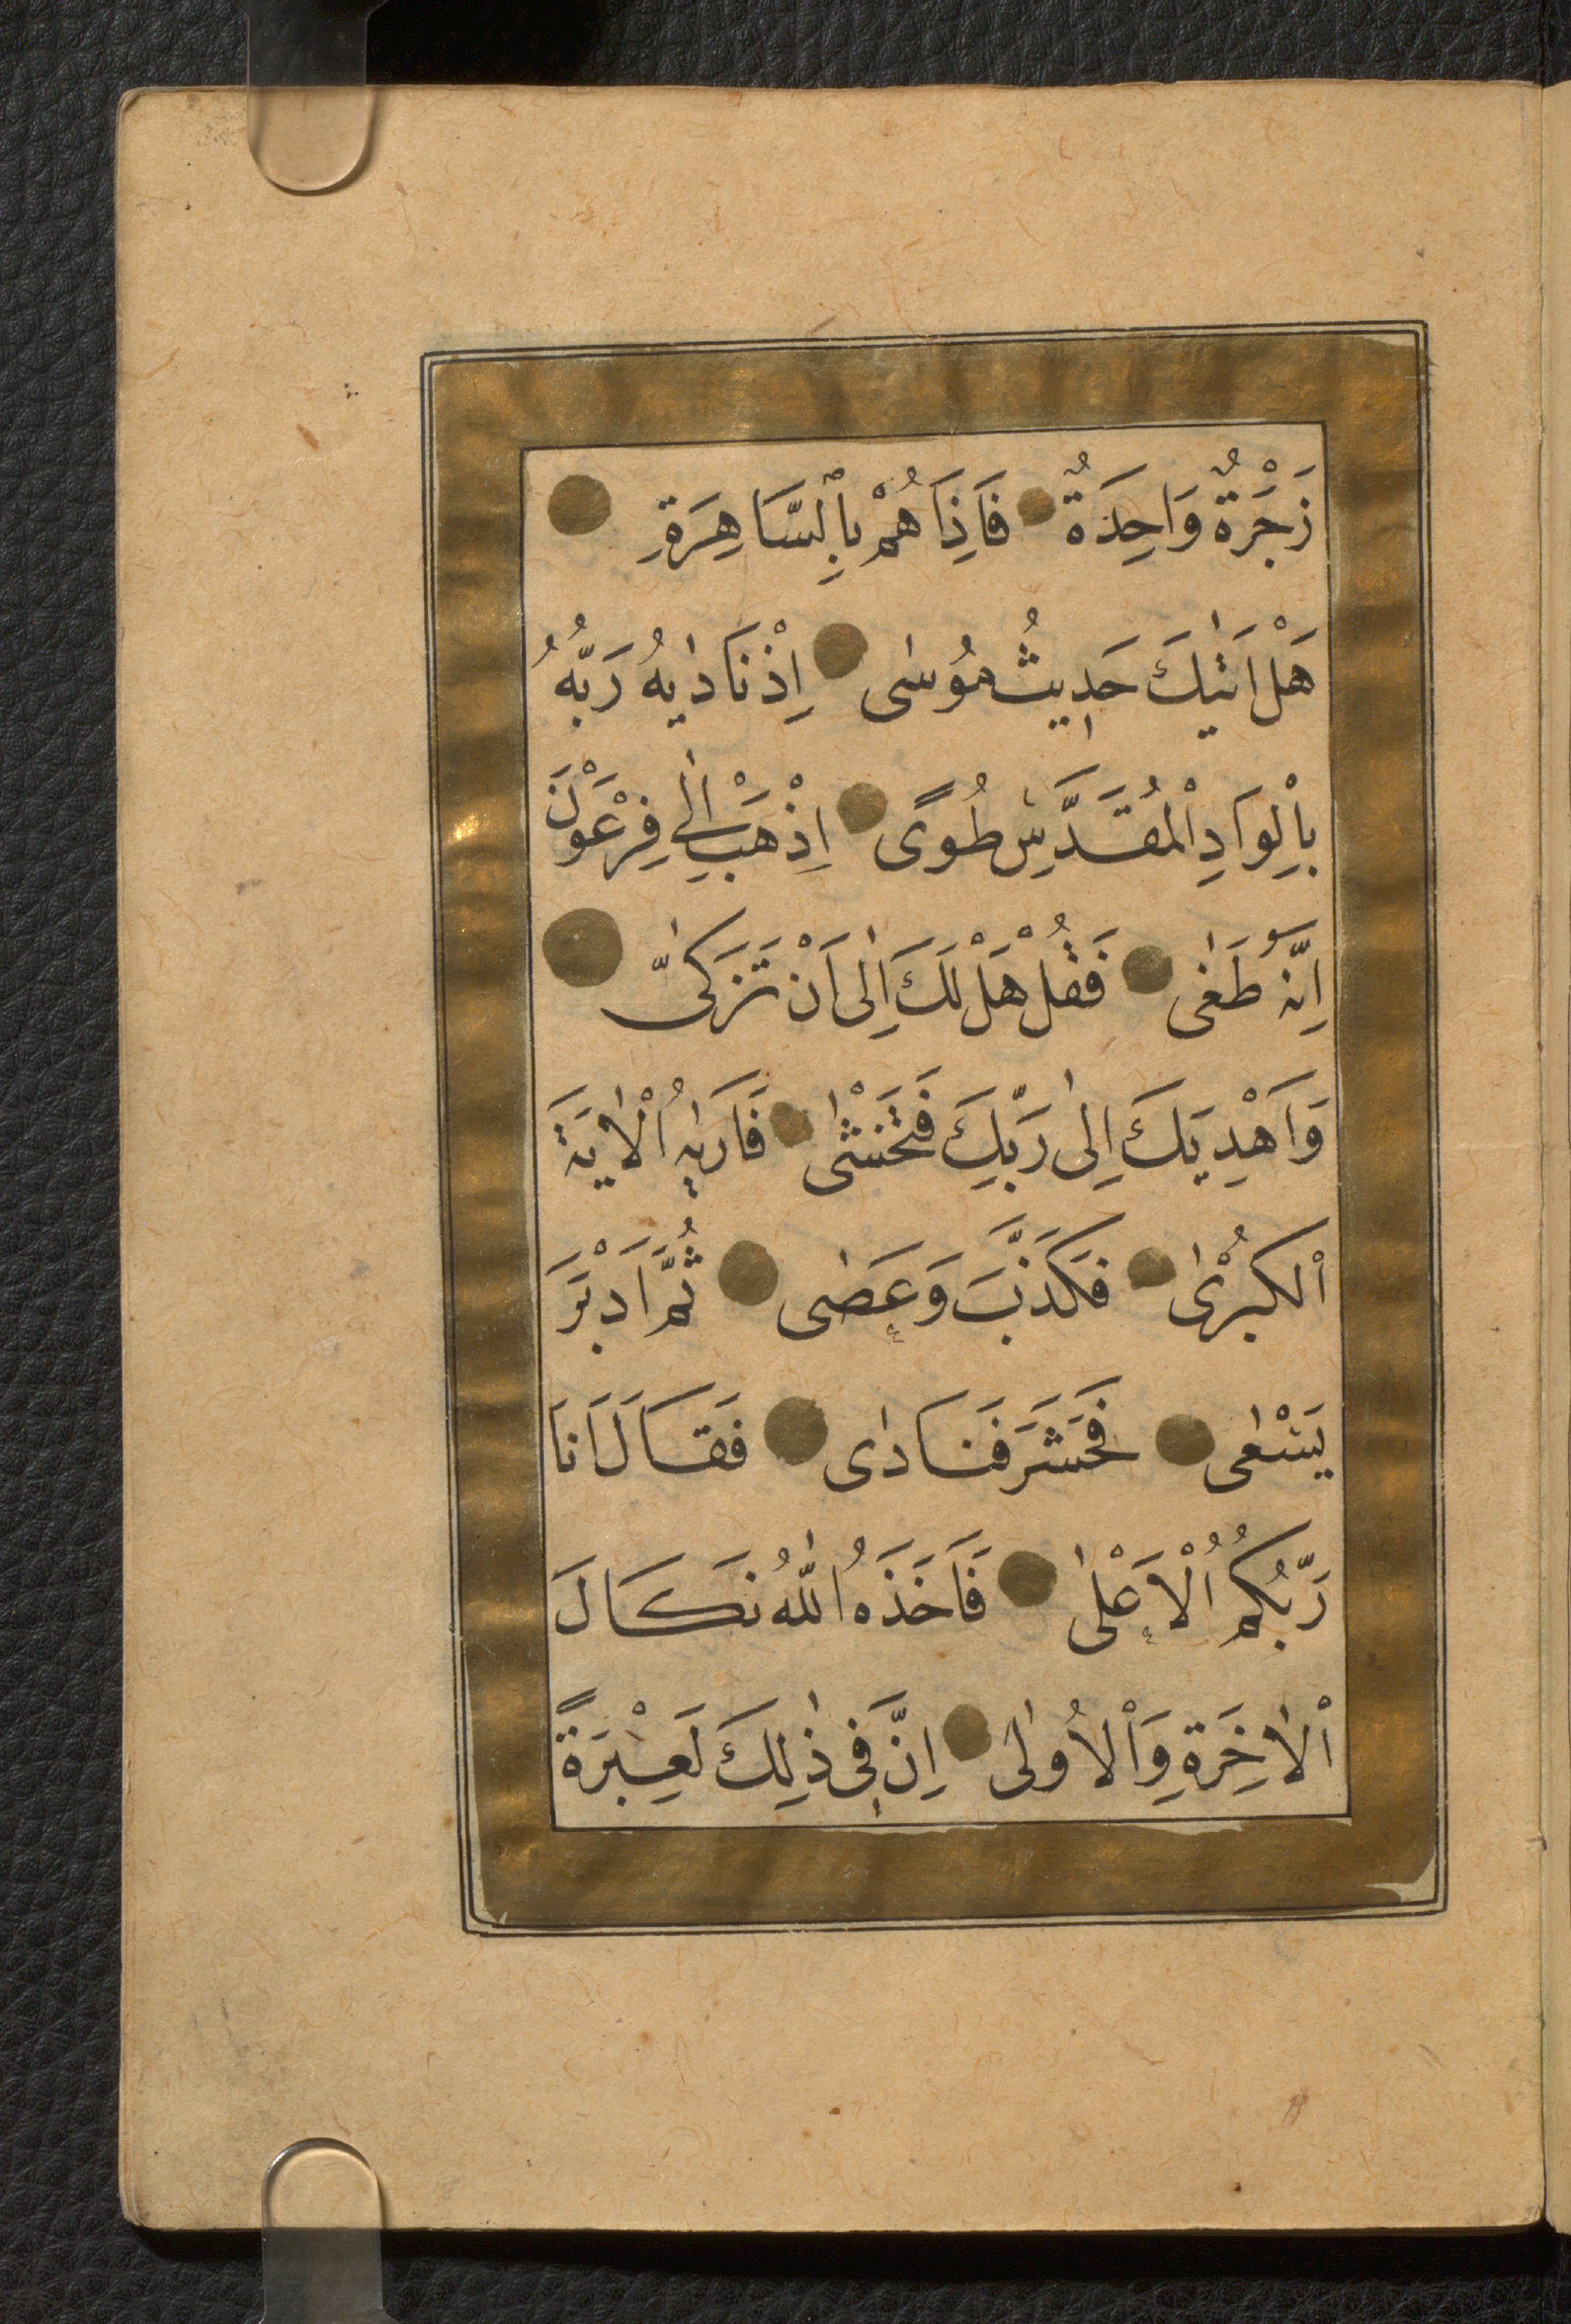 زَجْرَةٌ وَاحِدَةٌ فَاِذَا هُمْ بِالسَّاهِرَةِ
هَلْ اَتٰيكَ حَدٖيثُ مُوسٰى اِذْ نَادٰيهُ رَبُّهُ
بِالْوَادِ الْمُقَدَّسِ طُوًى اِذْهَبْ اِلٰى فِرْعَوْنَ
اِنَّهُ طَغٰى فَقُلْ هَلْ لَكَ اِلٰى اَنْ تَزَكّٰى
وَاَهْدِيَكَ اِلٰى رَبِّكَ فَتَخْشٰى فَاَرٰيهُ الْاٰيَةَ
الْكُبْرٰى فَكَذَّبَ وَعَصٰى ثُمَّ اَدْبَرَ
يَسْعٰى فَحَشَرَ فَنَادٰى فَقَالَ اَنَا
رَبُّكُمُ الْاَعْلٰى فَاَخَذَهُ اللّٰهُ نَكَالَ
الْاٰخِرَةِ وَالْاُولٰى اِنَّ فٖى ذٰلِكَ لَعِبْرَةً